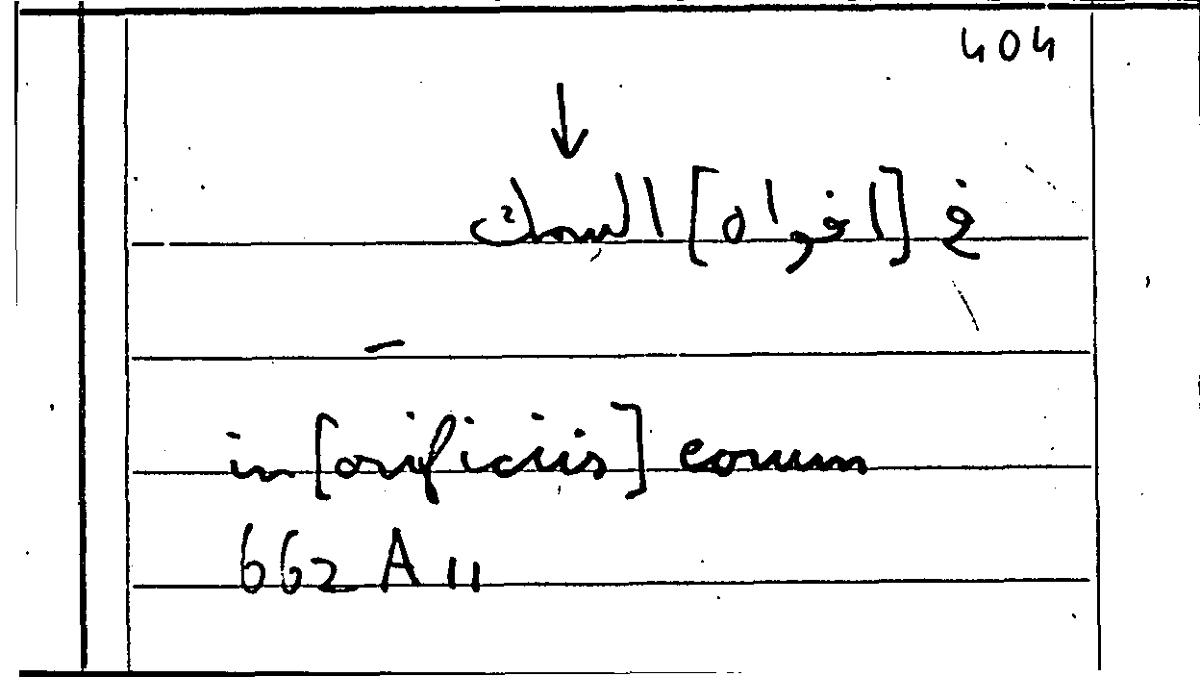 404
↓
في [افواه] السمك
—
in [orificiis] eorum
662 A 11